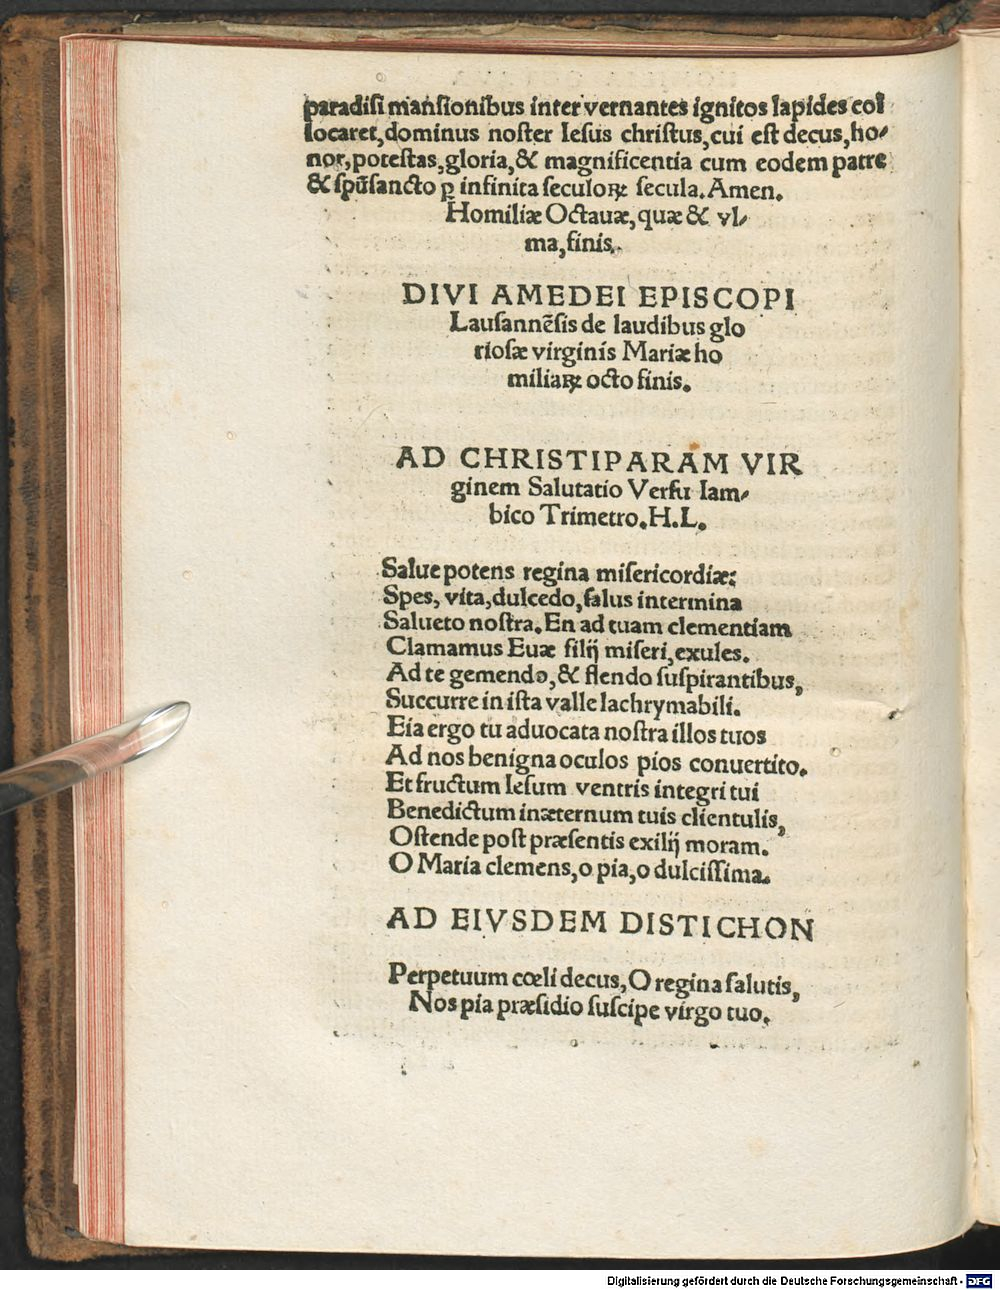 paradisi mansionibus inter vernantes ignitos lapides col
locaret, dominus noster Iesus christus, cui est decus, ho-
nor, potestas, gloria, & magnificentia cum eodem patre
& spũsancto ꝑ infinita seculoꝝ secula. Amen.
Homiliæ Octauæ, quæ & vl-
ma, finis.
DIVI AMEDEI EPISCOPI
Lausannẽsis de laudibus glo
riosæ virginis Mariæ ho
miliaꝝ octo finis.
AD CHRISTIPARAM VIR
ginem Salutatio Versu Iam-
bico Trimetro. H. L.
Salue potens regina misericordiæ:
Spes, vita, dulcedo, salus intermina
Salueto nostra. En ad tuam clementiam
Clamamus Euæ filij miseri, exules.
Ad te gemendo, & flendo suspirantibus,
Succurre in ista valle lachrymabili.
Eia ergo tu aduocata nostra illos tuos
Ad nos benigna oculos pios conuertito.
Et fructum Iesum ventris integri tui
Benedictum inæternum tuis clientulis,
Ostende post præsentis exilij moram.
O Maria clemens, o pia, o dulcissima.
AD EIVSDEM DISTICHON
Perpetuum cœli decus, O regina salutis,
Nos pia præsidio suscipe virgo tuo.
Digitalisierung gefördert durch die Deutsche Forschungsgemeinschaft - DFG